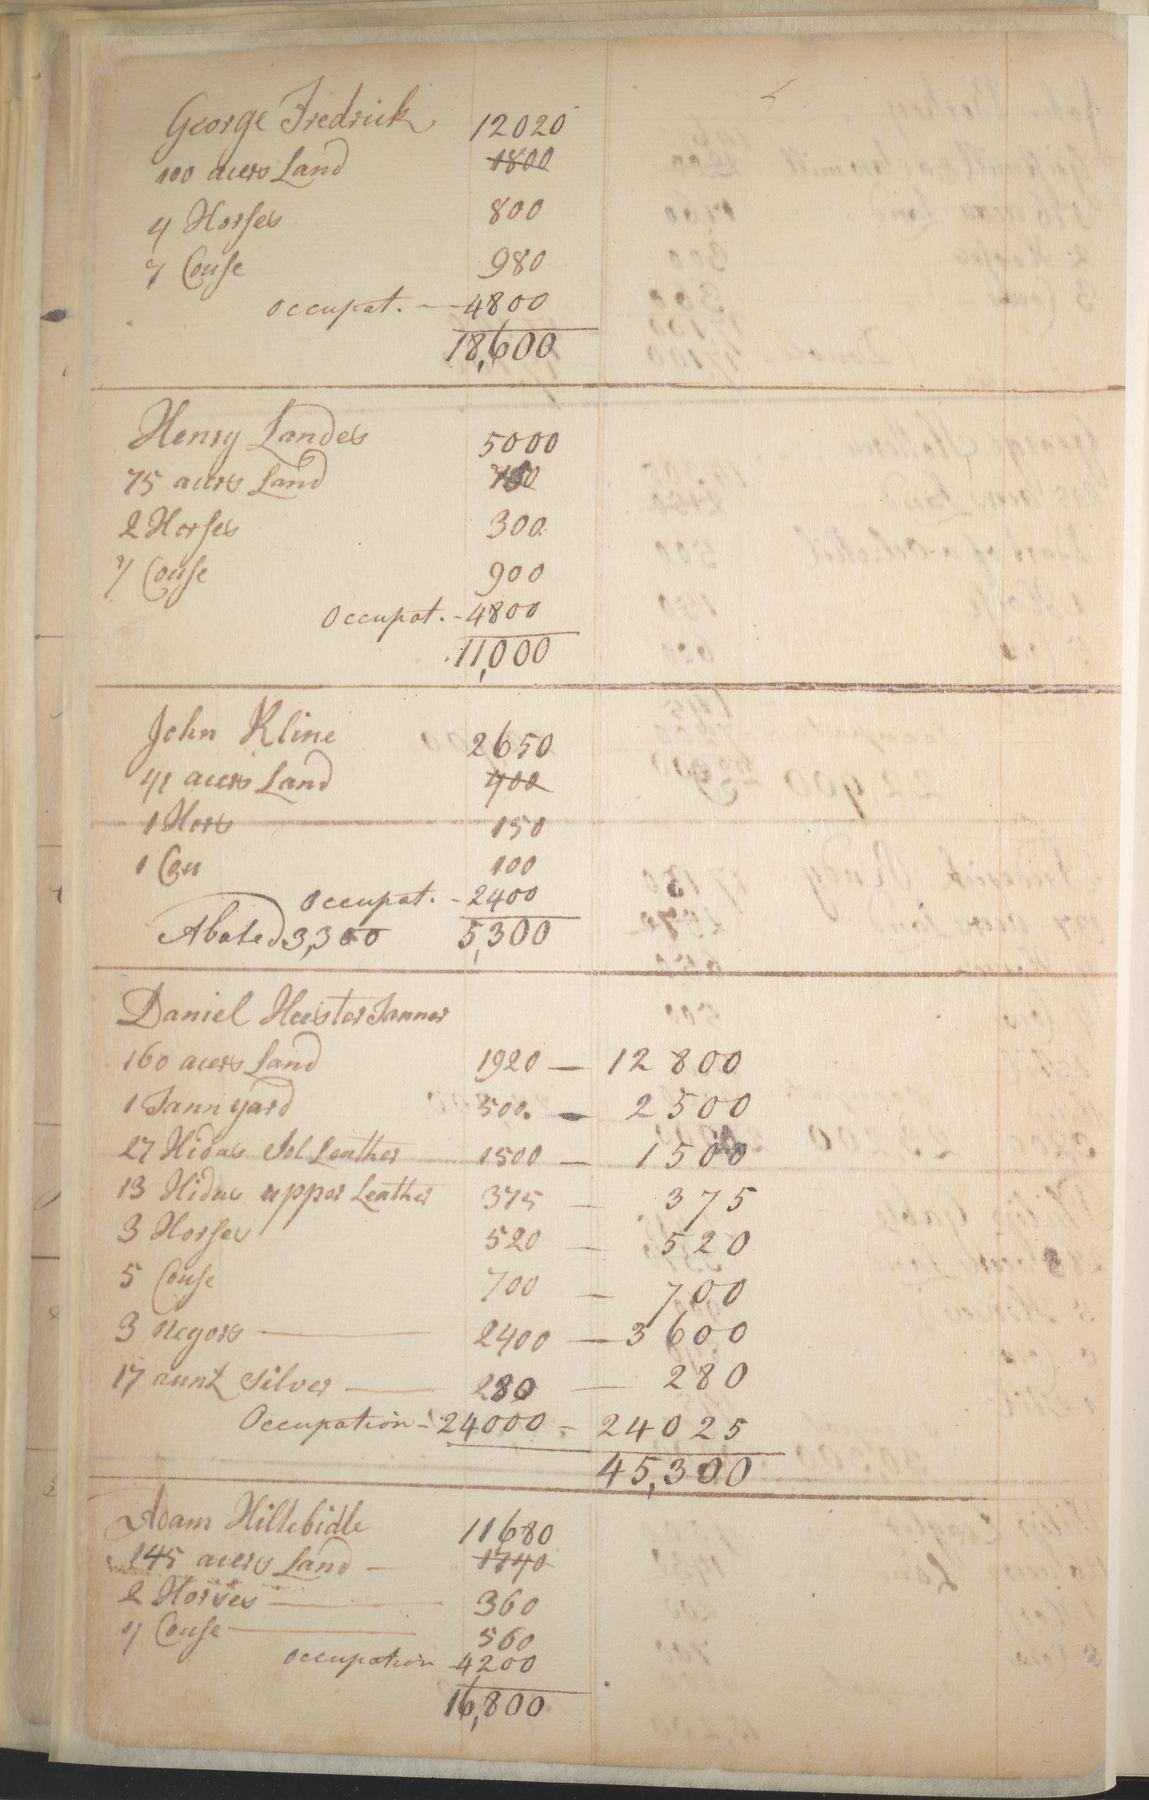 George Fredrick 12020
100 acers Land 1800
4 Horses 800
7 Couse 980
Occupat. — 4800
18,600
Henry Landes 5000
75 acers Land
2 Horses 300
7 Couse 900
Occupat. - 4800
11,000
John Kline 2650
41 acers Land 400
1 Hors 150
1 Cou 100
Occupat. - 2400
Abated 3,300 5,300
Daniel Heister Tanner
160 acers Land 1920 — 12800
1 Tann yard 500. — 2500
27 Hides Sol Leather 1500 — 1500
13 Hides upper Leather 375 — 375
3 Horses 520 — 520
5 Couse 700 — 700
3 negors — 2400 — 3600
17 aunt Silver — 280 — 280
Occupation - 24000 - 24025
45,300
Adam Hillebidle 11680
145 acers Land — 1740
2 Horses — 360
4 Couse — 560
Occupation 4200
16,800